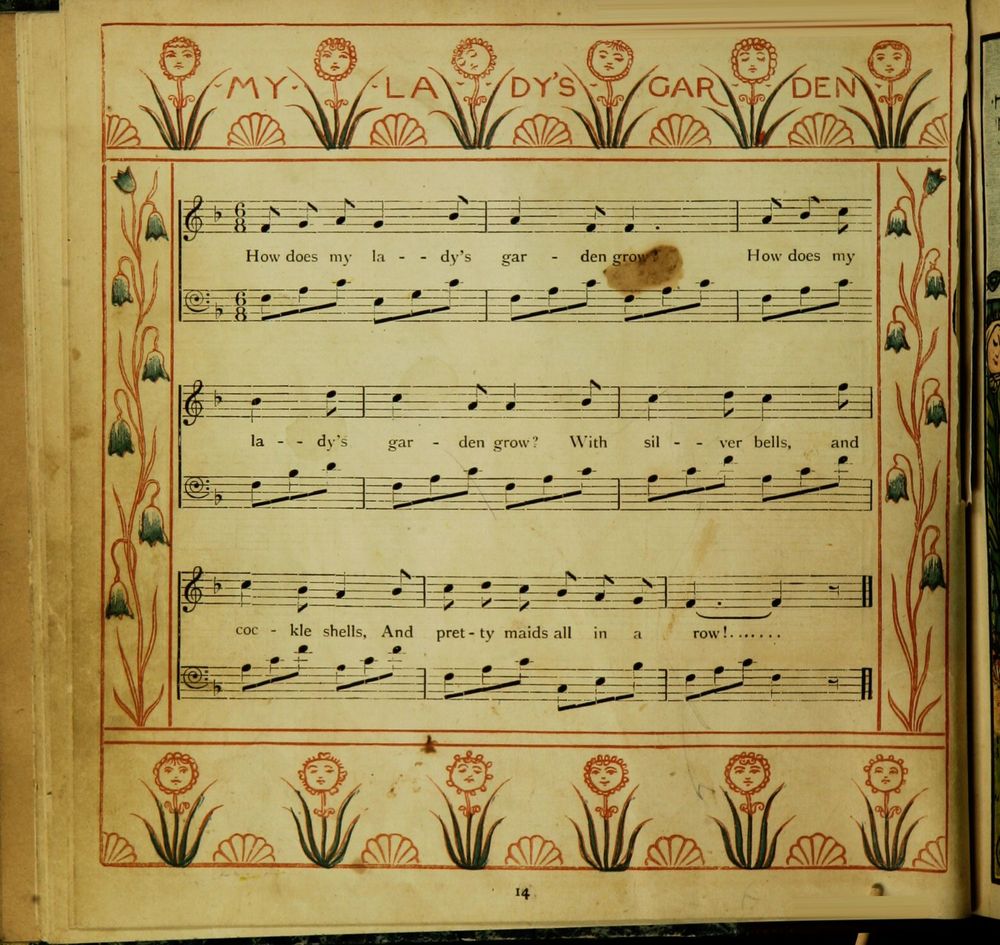 MY LADY'S GARDEN
6 8
How does my la - - dy's gar - den grow? How does my
6 8
la - - dy's gar - den grow? With sil - - ver bells, and
coc - kle shells, And pret - ty maids all in a row!.......
14